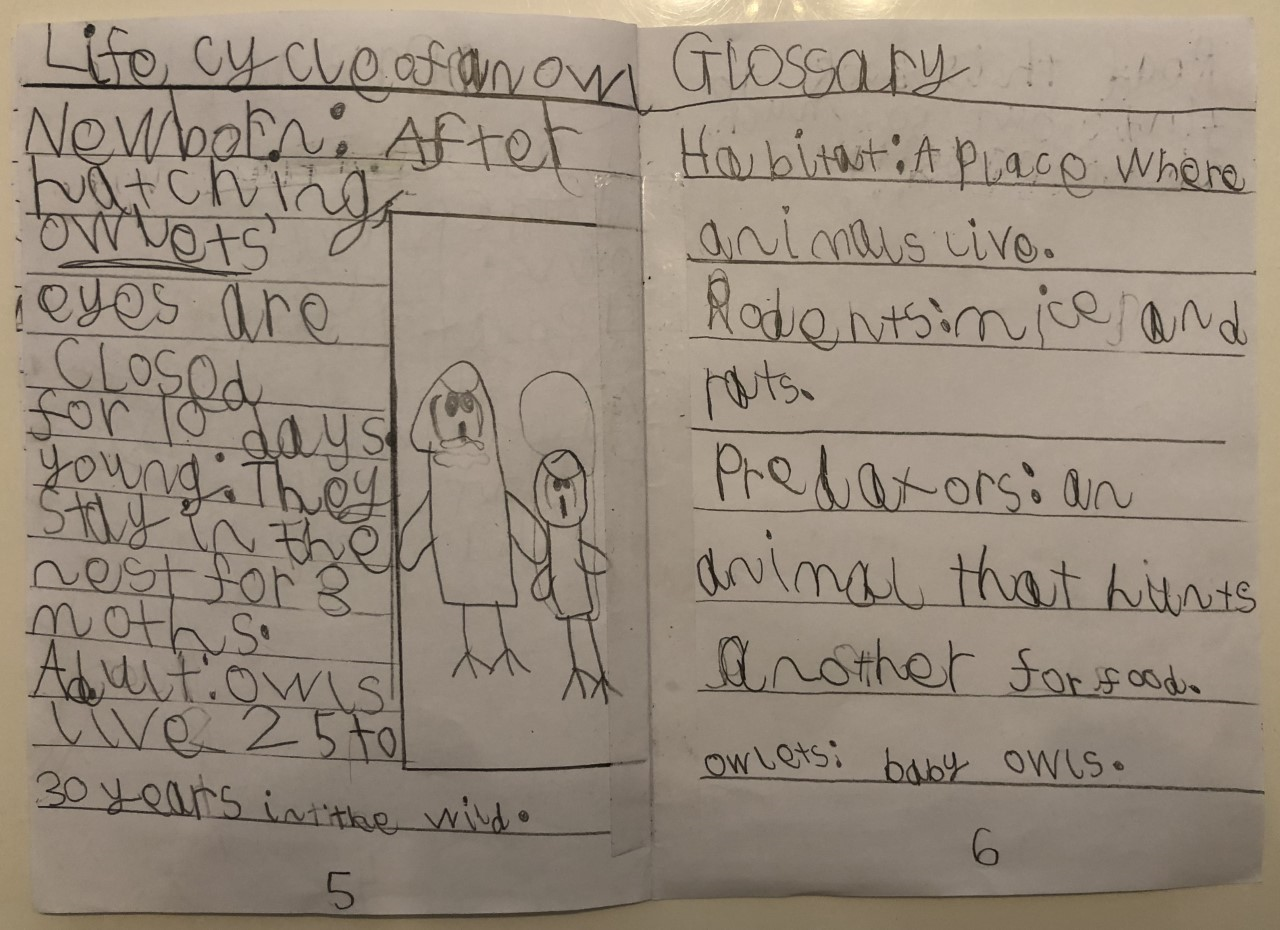 Life cycle of an owl
Newborn: After
hatching,
owlets'
eyes are
closed
for 10 days.
young: They
stay in the
nest for 3
moths.
Adult: owls
live 25 to
30 years in the wild.
5
Glossary
Habitat: A place where
animals live.
Rodents: mice and
rats.
Predators: an
animal that hunts
another for food.
owlets: baby owls.
6